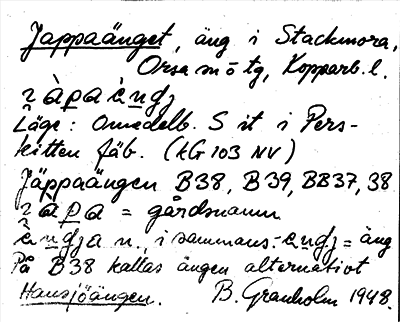 Jappaänget, äng i Stackmora,
Orsa m o tg, Kopparb. l.
Läge: Omedelb. S it i Pers-
kitten fäb. (kG 103 NV)
Jäppaängen B38, B39, BB37, 38
= gårdsnamn
n., i sammans.- = äng
På B38 kallas ängen alternativt
Hansjöängen. B. Granholm 1948.